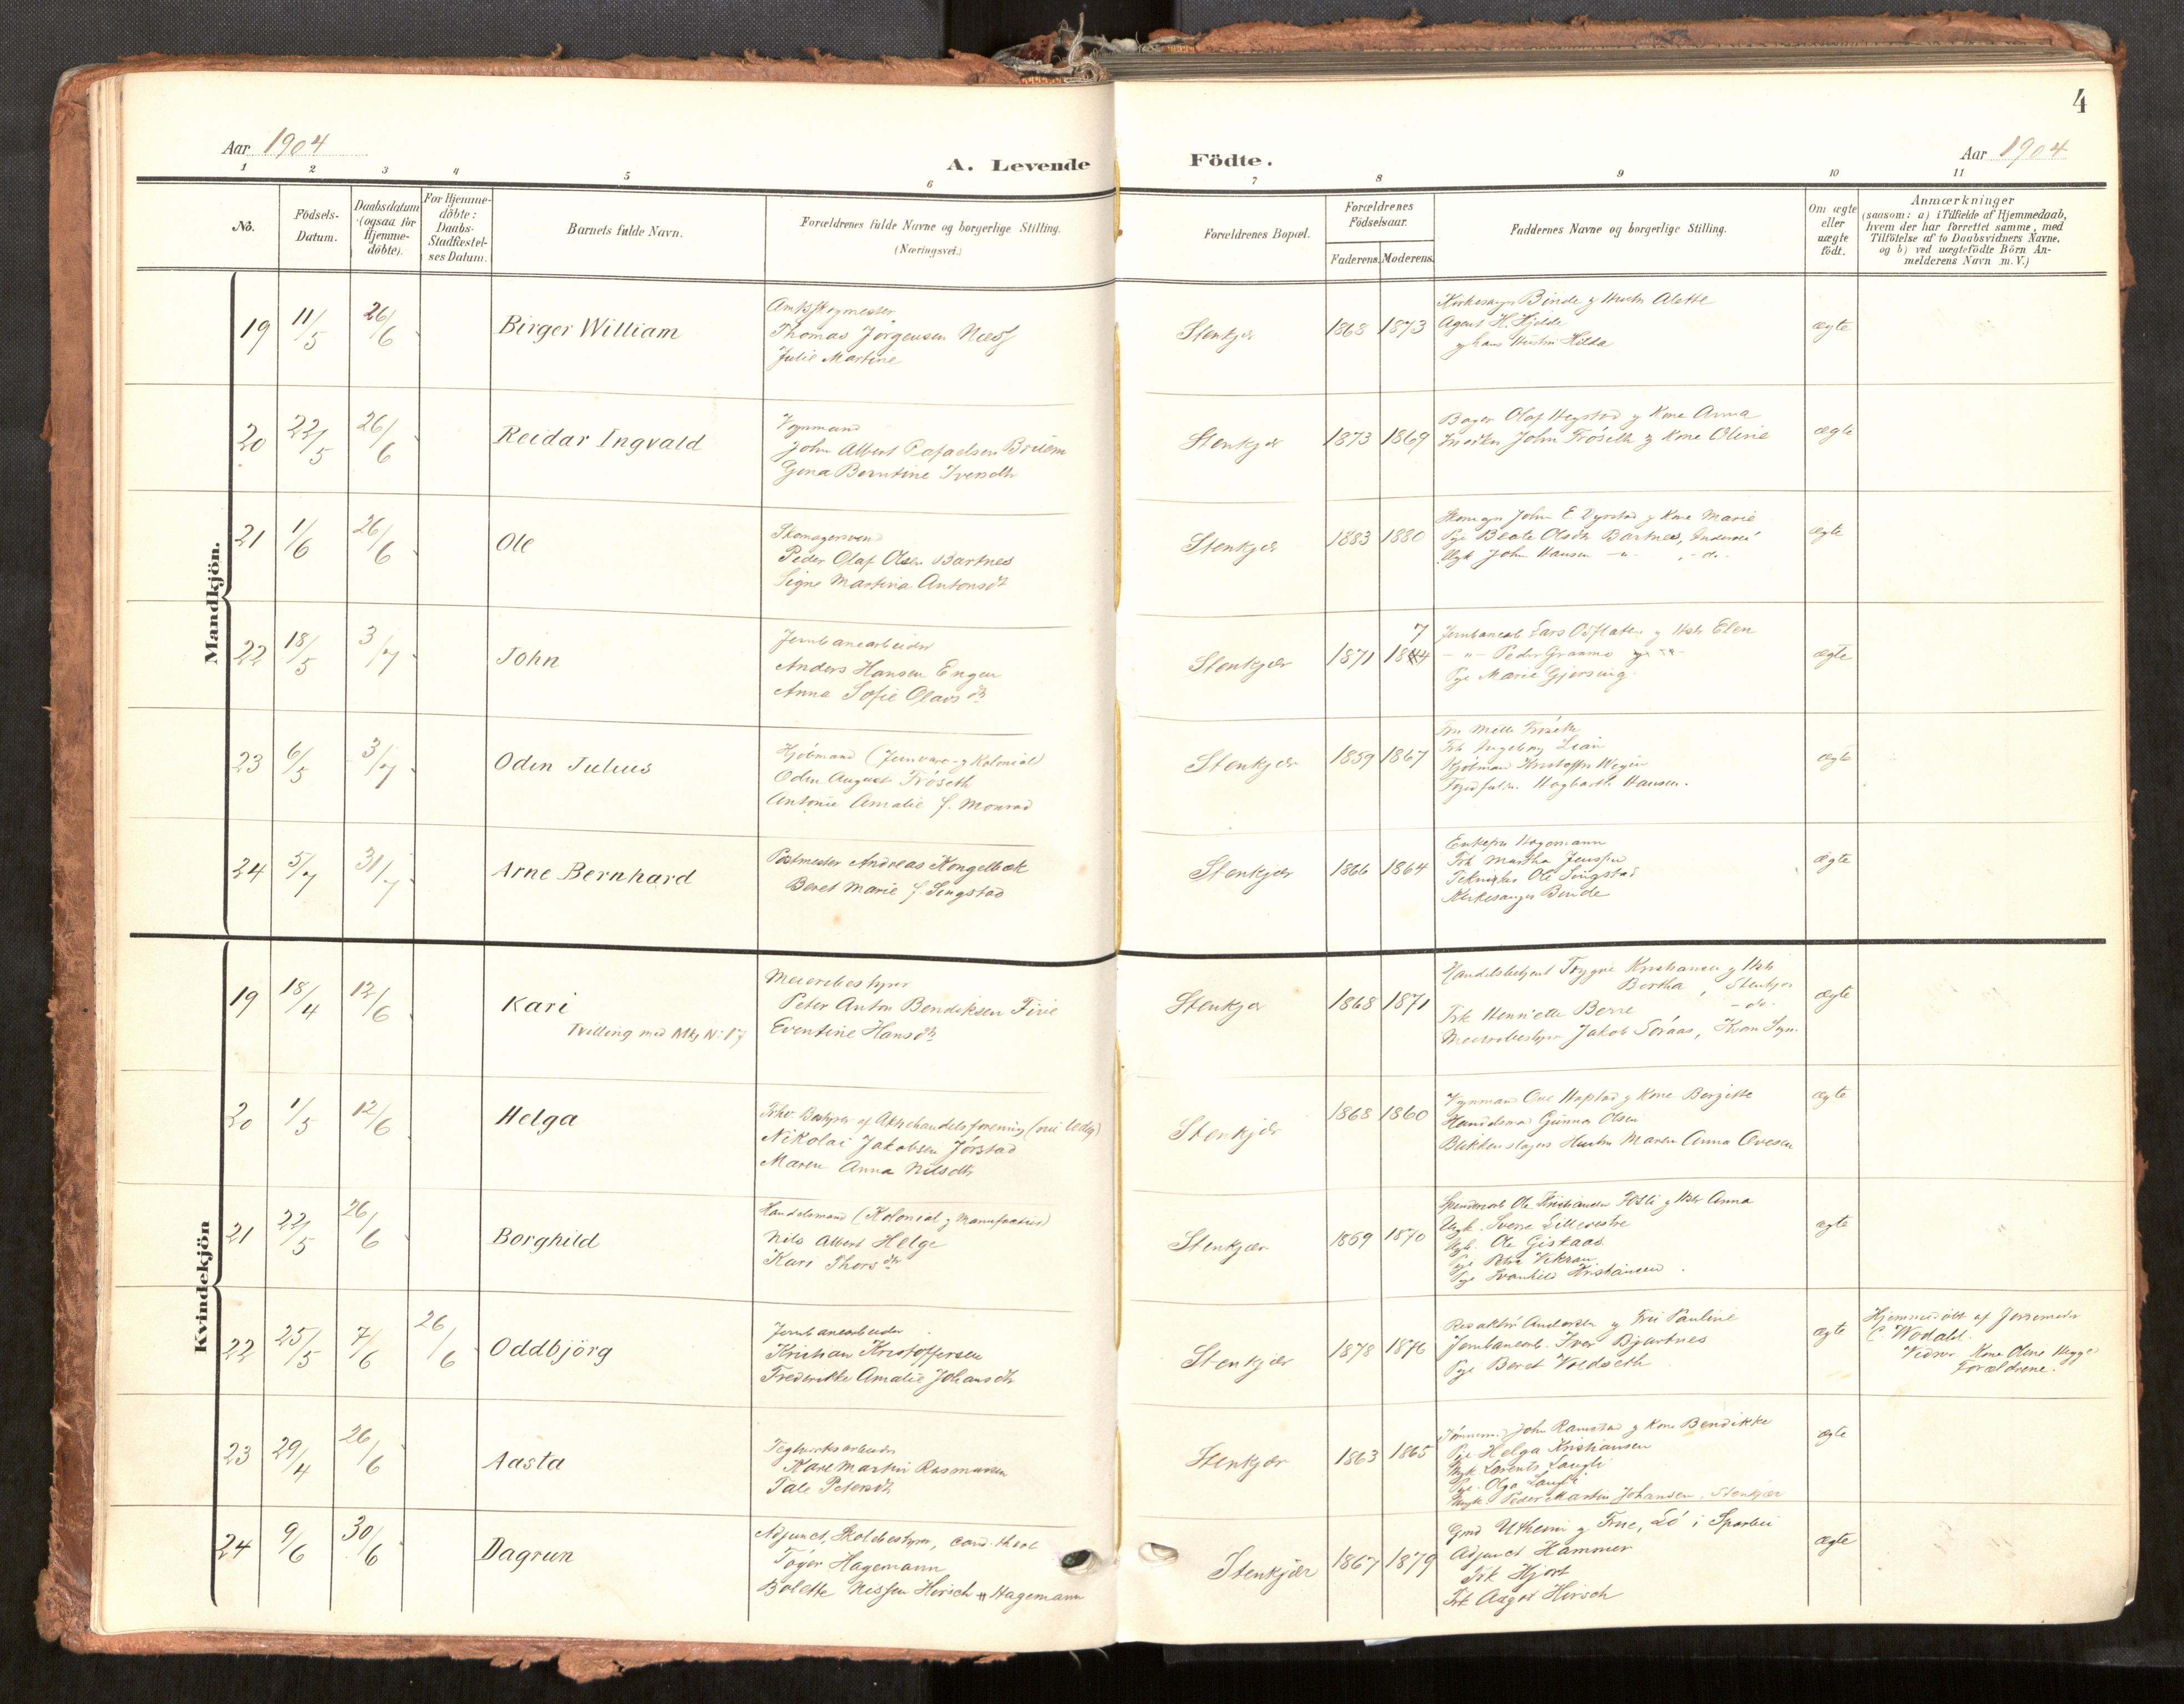 4
Aar 1904
A. Levende Födte.
Aar 1904
1 2 3 4 5 6 7 8 9 10 11
No.
Födsels-
Datum.
Daabsdatum
(ogsaa for
Hjemme-
döbte).
For Hjemme-
döbte:
Daabs-
Stadfæstel-
ses Datum.
Barnets fulde Navn.
Forældrenes fulde Navne og borgerlige Stilling.
(Næringsvei.)
Forældrenes Bopæl.
Forældrenes
Födselsaar.
Faderens. Moderens.
Faddernes Navne og borgerlige Stilling.
Om ægte
eller
uægte
födt.
Anmærkninger
(saasom: a) i Tilfælde af Hjemmedaab,
hvem der har forrettet samme, med
Tilföielse af to Daabsvidners Navne,
og b) ved uægtefödte Börn An-
melderens Navn m. V.)
Mandkjön.
19 11/5 26/6 Birger William
Thomas Jörgensen
Julie Martine
Stenkjær 1868 1873
Kirkesanger Binde g Hustr Alette
Agent H. Hjelde
g hans Hustru Hilda
ægte
20 22/5 26/6 Reidar Ingvald
Vognmand
John Albert
Gina Berntine
Stenkjær 1873 1869
Bager Olaf Hegstad g Kone Anna
John Fröseth g Kone Oline
ægte
21 1/6 26/6 Ole
Skomagersvend
Peder Olaf Olsen Bartnes
Signe Martina Antonsdt
Stenkjær 1883 1880
John E. Dyrstad g Kone Marie
Pge Beate Olsdtr Bartnes, Inderöi
Ugk John Hansen -"- , -do-
ægte
22 18/5 3/7 John
Jernbanearbeider
Anders Hansen Engen
Anna Sofie Olavsdtr
Stenkjær 1871 1844
7
Jernbanearb Lars Osflaten g Hstr Elen
-"- Peder Graamo
Pge Marie Gjersing
ægte
23 6/5 3/7 Oden Julius
Kjöbmand (Jernvare- g Kolonial)
Oden August Fröseth
Antonie Amalie f. Monrad
Stenkjær 1859 1867
Fru Mette Fröseth
Frk Ingeborg Lian
Kjöbmand Kristoffer
Hagbarth Hansen.
ægte
24 5/7 31/7 Arne Bernhard
Postmester Andreas Kongelbæk
Beret Marie f. Singstad
Stenkjær 1866 1864
Enkefru Hagemann
Frk Martha Jenssen
Ole Singstad
Kirkesanger Binde
ægte
Kvindekjön
19 18/4 12/6 Kari
Tvilling med Mkj N: 17
Meieribestyrer
Peter Anton Bendiksen
Eventine Hansdtr
Stenkjær 1868 1871
Handelsbetjent Trygve Kristiansen g Hstr
Bertha, Stenkjær
Frk Henriette Berre -do-
Meieribestyrer Jakob Soraas,
ægte
20 1/5 12/6 Helga
Bestyrer af Aktiehandelsforening (nu ledig)
Nikolai Jakobsen Jörstad
Maren Anna Nilsdtr
Stenkjær 1868 1860
Vognmand Ove Hopstad g Kone Bergitte
Gunnar Olsen
Blikkenslagers Hustru Maren Anna Ovesen
ægte
21 22/5 26/6 Borghild
Handelsmand (Kolonial g Manufactur)
Nils Albert Helge
Kari Thorsdtr
Stenkjær 1869 1870
Ole Kristiansen g Hstr Anna
Ungk. Sverre Lillevestre
Ugk. Ole Gistaas
Pge Petra
Pge Kristiansen
ægte
22 25/5 7/6 26/6 Oddbjörg
Jernbanearbeider
Kristian Kristoffersen
Frederikke Amalie Johansdtr
Stenkjær 1878 1876
Redaktör Andersen g Fru Pauline
Jernbanearb. Iver Bjartnes
Pge Beret Voldseth
ægte
Hjemmedöbt af Jordemoder
C. Wodahl.
Vidner: Kone Oline Hegge
Forældrene.
23 29/4 26/6 Aasta
Teglverksarbeider
Karl Martin Rasmussen
Tale Petersdtr
Stenkjær 1863 1865
John Ramstad g Kone Bendikke
Pge Helga Kristiansen
Ungk. Lorents Laugli
Pge Olga Laugli
Ungk. Peder Martin Johansen, Stenkjær
ægte
24 9/6 30/6 Dagrun
Adjunct, Skolebestyrer, cand. theol
Töger Hagemann
Bolette Nissen Hirsch Hagemann
Stenkjær 1867 1879
Utheim g Frue, Lö i Sparbu
Adjunct Hammer
Frk Hjort
Frk Aagot Hirsch
ægte